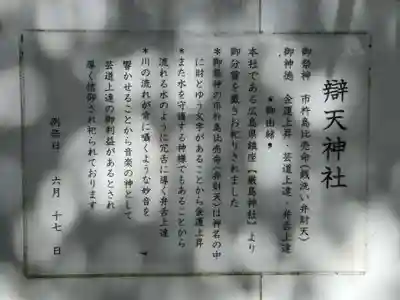 辯天神社
御祭神　市杵島比売命（銭洗い弁財天）
御神徳　金運上昇・芸道上達・弁舌上達
＊御由緒＊
本社である広島県鎮座【厳島神社】より
御分霊を戴きお祀りされました
＊御祭神の市杵島比売命（弁財天）は神名の中
に財とゆう文字があることから金運上昇
＊また水を守護する神様でもあることから
流れる水のように冗舌に導く弁舌上達
＊川の流れが常に囁くような妙音を
響かせることから音楽の神として
芸道上達の御利益があるとされ
篤く信仰され祀られております
例祭日　六月　十七　日